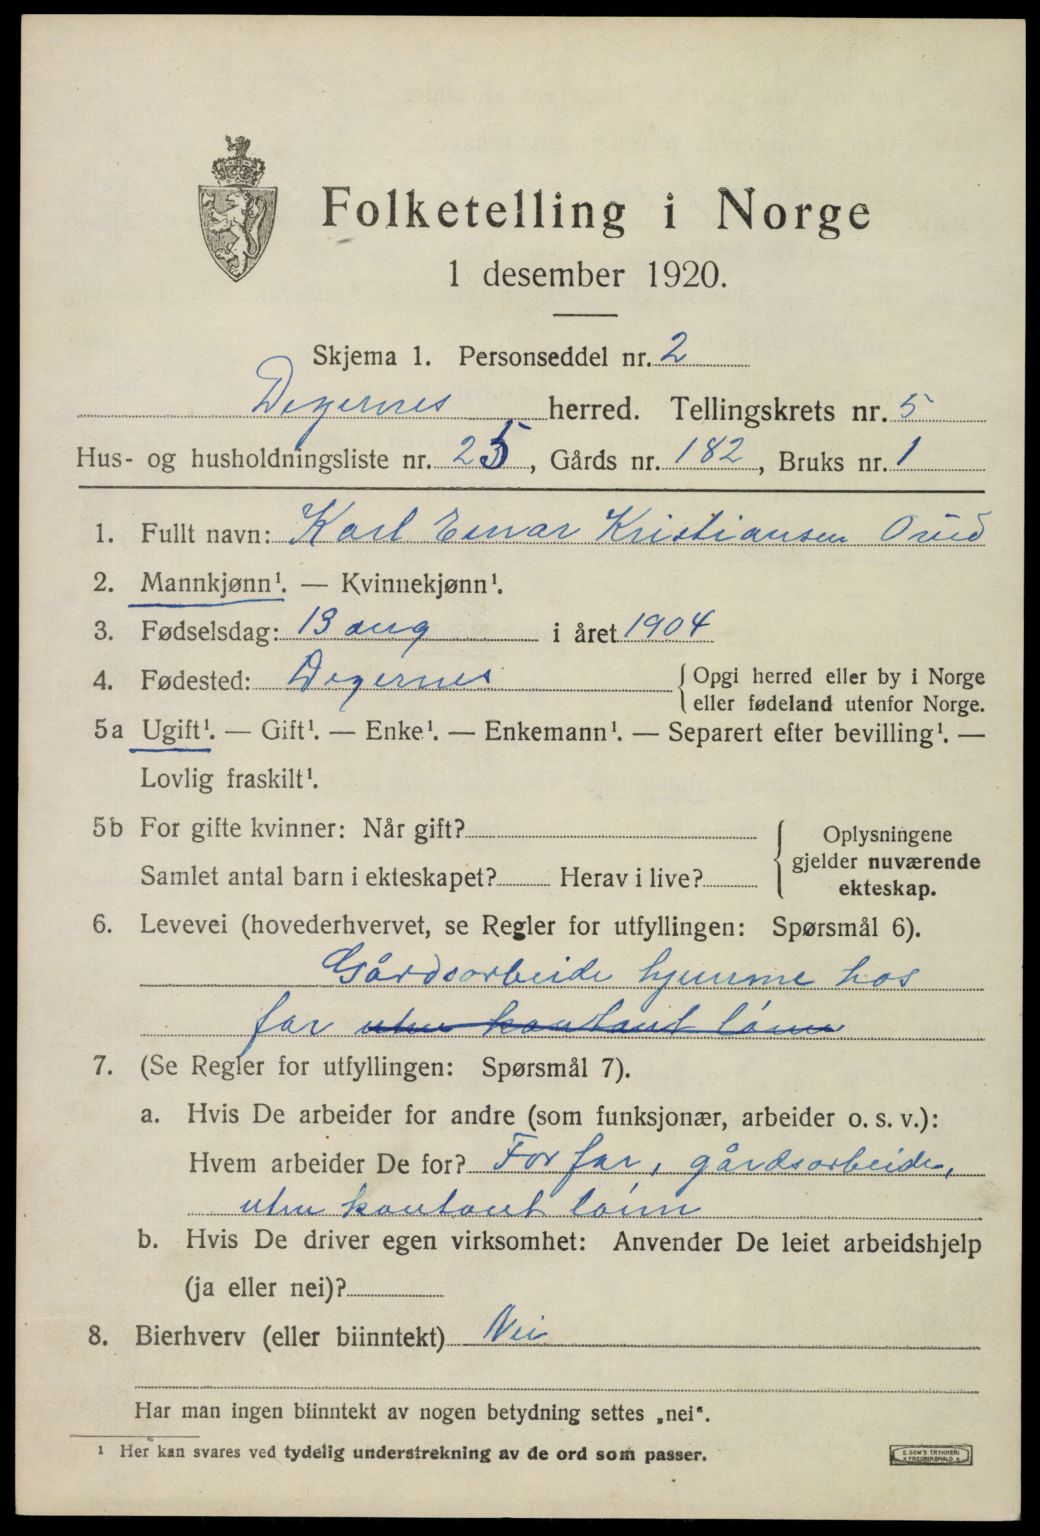 Folketelling i Norge
1 desember 1920.
Skjema 1. Personseddel nr. 2
Degernes herred. Tellingskrets nr. 5
Hus- og husholdningsliste nr. 25, Gårds nr. 182, Bruks nr. 1
1. Fullt navn: Karl Einar Kristiansen
2. Mannkjønn¹. — Kvinnekjønn¹.
3. Fødselsdag: 13 aug i året 1904
4. Fødested: Degernes { Opgi herred eller by i Norge
eller fødeland utenfor Norge.
5a Ugift¹. — Gift¹. — Enke¹. — Enkemann¹. — Separert efter bevilling¹. —
Lovlig fraskilt¹.
5b For gifte kvinner: Når gift?
Samlet antal barn i ekteskapet? Herav i live?
{ Oplysningene
gjelder nuværende
ekteskap.
6. Levevei (hovederhvervet, se Regler for utfyllingen: Spørsmål 6).
Gårdsarbeide hjemme hos
far uten kontant lønn
7. (Se Regler for utfyllingen: Spørsmål 7).
a. Hvis De arbeider for andre (som funksjonær, arbeider o. s. v.):
Hvem arbeider De for? For far, gårdsarbeide,
uten kontant lønn
b. Hvis De driver egen virksomhet: Anvender De leiet arbeidshjelp
(ja eller nei)?
8. Bierhverv (eller biinntekt) Nei
Har man ingen biinntekt av nogen betydning settes „nei“.
¹ Her kan svares ved tydelig understrekning av de ord som passer.
E. SEM'S TRYKKERI
FREDRIKSHALD